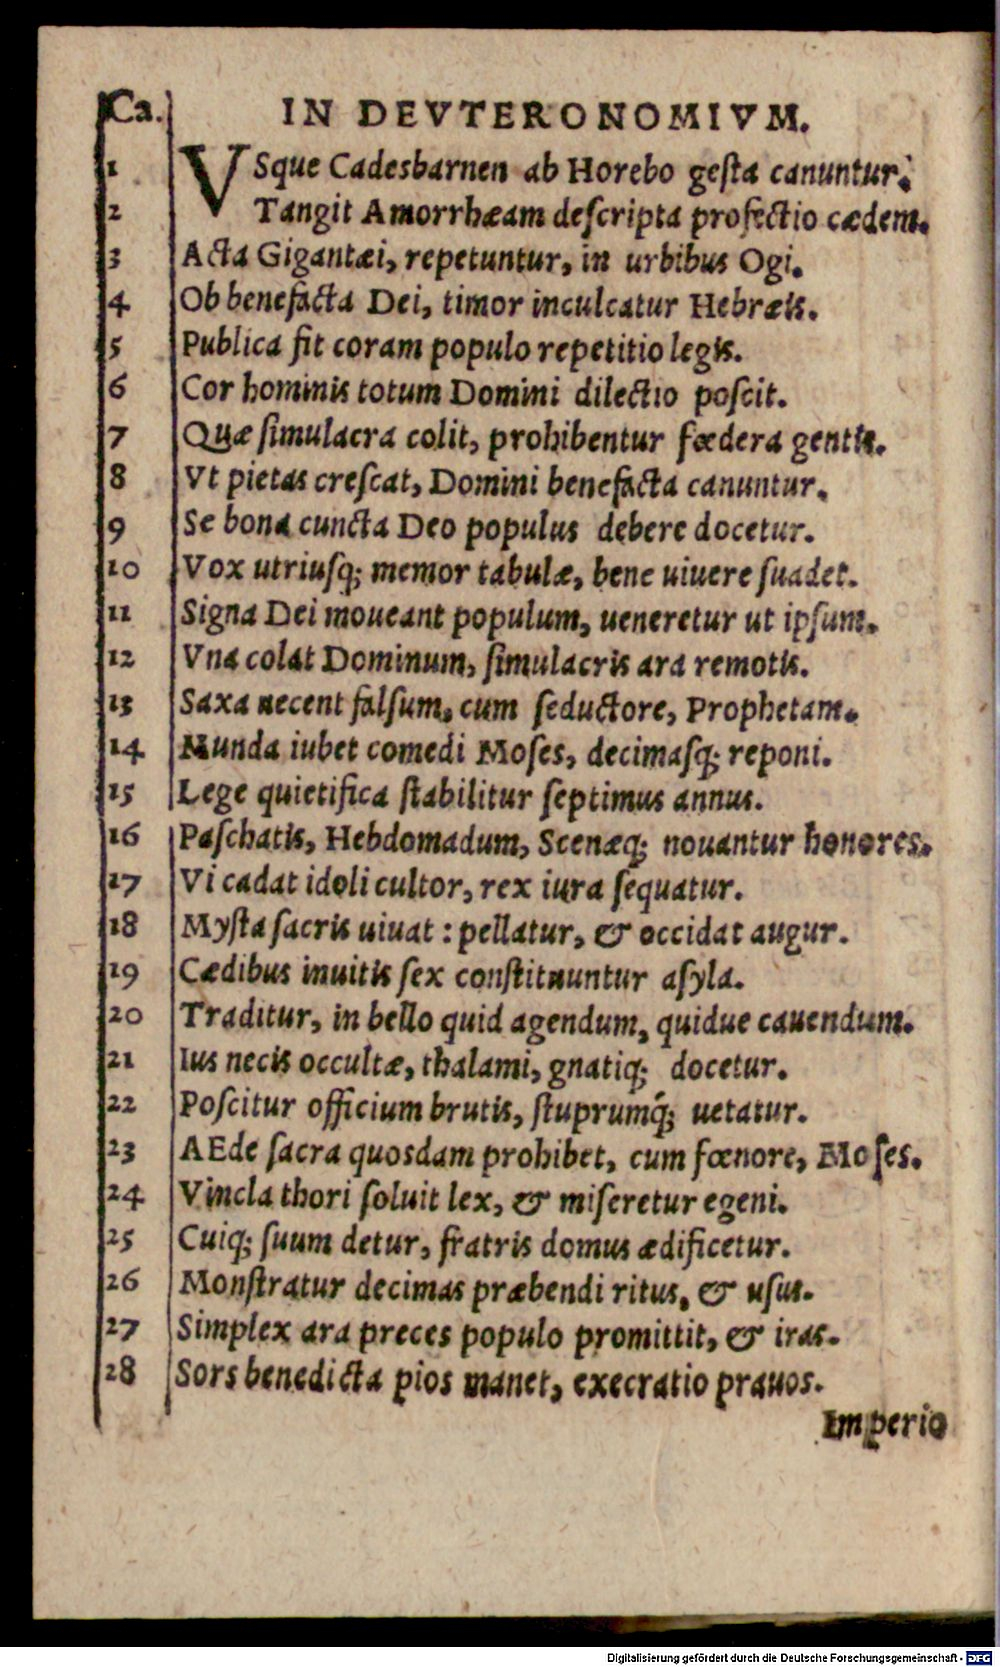 Ca. IN DEVTERONOMIVM.
1 VSque Cadesbarnen ab Horebo gesta canuntur.
2 Tangit Amorrhæam descripta profectio cædem.
3 Acta Gigantæi, repetuntur, in urbibus Ogi.
4 Ob benefacta Dei, timor inculcatur Hebræis.
5 Publica fit coram populo repetitio legis.
6 Cor hominis totum Domini dilectio poscit.
7 Quæ simulacra colit, prohibentur fœdera gentis.
8 Vt pietas crescat, Domini benefacta canuntur.
9 Se bona cuncta Deo populus debere docetur.
10 Vox utriusq; memor tabulæ, bene uiuere suadet.
11 Signa Dei moueant populum, ueneretur ut ipsum.
12 Vna colat Dominum, simulacris ara remotis.
13 Saxa necent falsum, cum seductore, Prophetam.
14 Munda iubet comedi Moses, decimasq; reponi.
15 Lege quietifica stabilitur septimus annus.
16 Paschatis, Hebdomadum, Scenæq; nouantur honores.
17 Vi cadat idoli cultor, rex iura sequatur.
18 Mysta sacris uiuat: pellatur, & occidat augur.
19 Cædibus inuitis sex constituuntur asyla.
20 Traditur, in bello quid agendum, quidue cauendum.
21 Ius necis occultæ, thalami, gnatiq; docetur.
22 Poscitur officium brutis, stuprumq́; uetatur.
23 AEde sacra quosdam prohibet, cum fœnore, Moses.
24 Vincla thori soluit lex, & miseretur egeni.
25 Cuiq; suum detur, fratris domus ædificetur.
26 Monstratur decimas præbendi ritus, & usus.
27 Simplex ara preces populo promittit, & iras.
28 Sors benedicta pios manet, execratio prauos.
Imperio
Digitalisierung gefördert durch die Deutsche Forschungsgemeinschaft - DFG